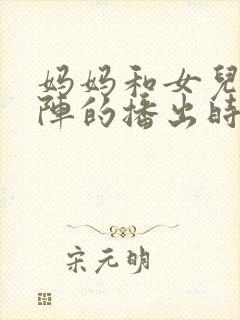 妈妈和女兒
陣的播出時
宋元明